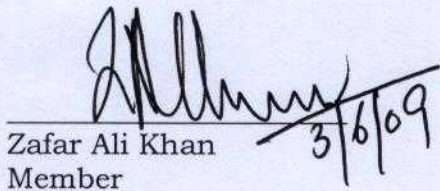 3/6/09
Zafar Ali Khan
Member